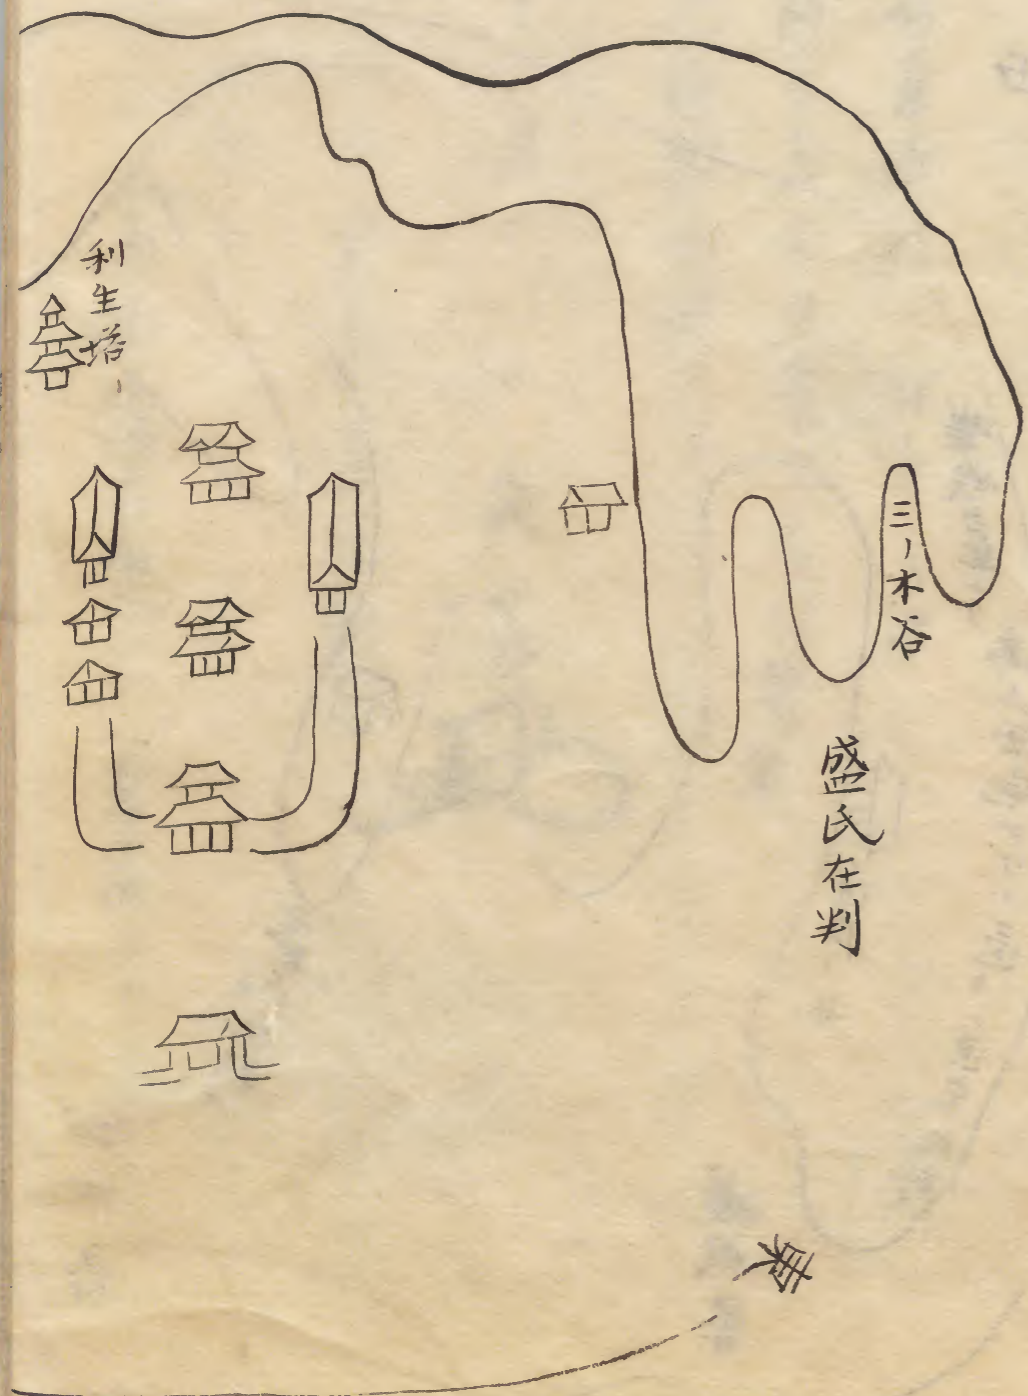 三ノ木谷
盛氏在判
利生塔
東